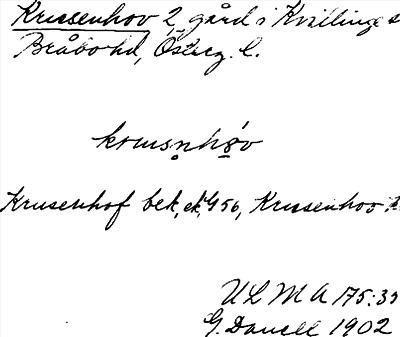 Krusenhov 2, gård i Kvillinge s
Bråbo hd, Österg. l.
Krusenhof bek, ek, G 56, Krusenhov
ULMA 175:35
G. Danell 1902